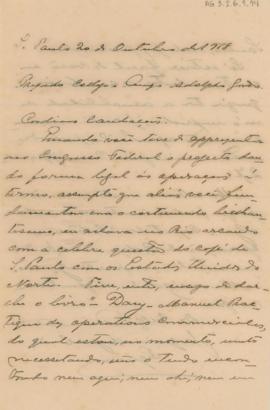 AG 3.2.6.1.94
S. Paulo 20 de Outubro de 19
Prezado Collega e Amigo Adolpho Gordo
Cordiaes Saudações.
Quando você teve de appresentar
ao Congresso Federal o projecto dando
forma legal ás operações á
termo, assumpto que aliás você fun-
damentou com o costumado brilhan-
tismo, eu achava no Rio
com a celebre questão do café de
S. Paulo com os Estados Unidos do
Norte. Tive, então, de dar-
lhe o livro - Dany - Manuel Pra-
tique des operations commerciales,
do qual estou, no momento, muito
necessitando, não o tendo encon-
trado nem aqui, nem ahi, nem em